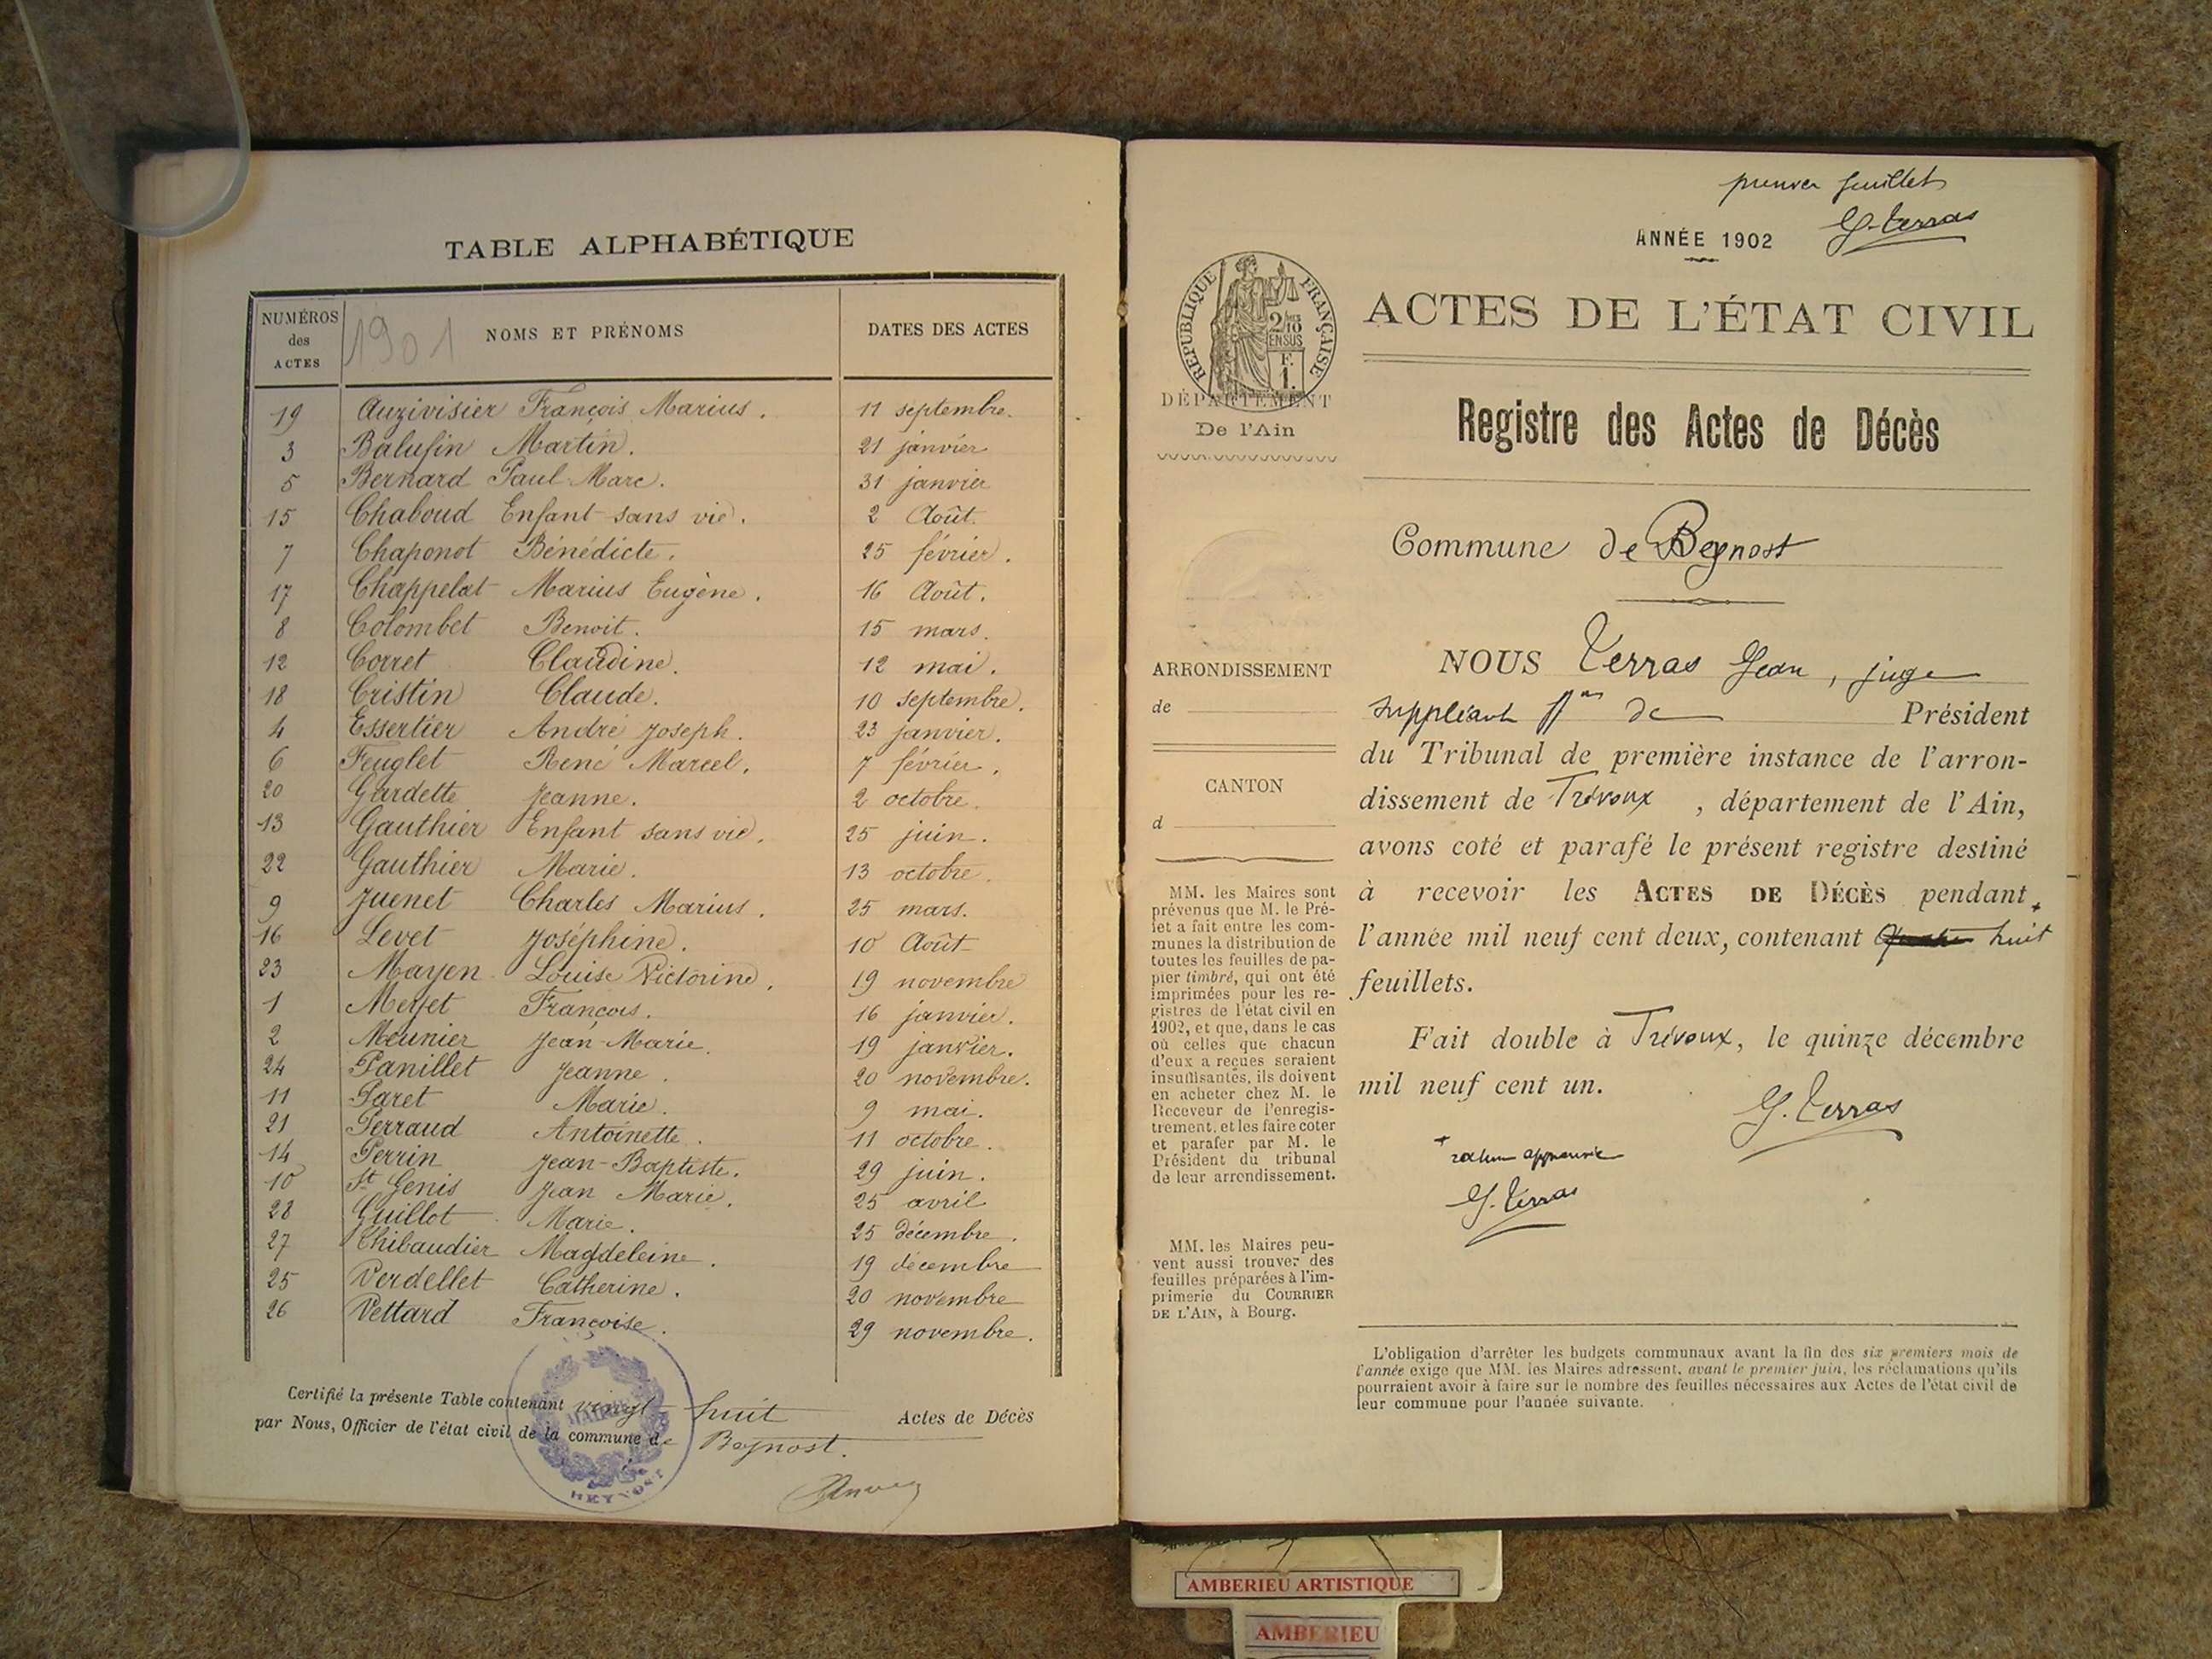 TABLE ALPHABÉTIQUE
NUMÉROS des ACTES
1901
NOMS ET PRÉNOMS
DATES DES ACTES
19 Auzivisier François Marius. 11 septembre.
3 Balufin Martin. 21 janvier
5 Bernard Paul Marc. 31 janvier
15 Chaboud Enfant sans vie. 2 Août.
7 Chaponot Bénédicte. 25 février.
17 Chappelat Marius Eugène. 16 Août.
8 Colombet Benoit. 15 mars.
12 Corret Claudine. 12 mai.
18 Cristin Claude. 10 septembre.
4 Essertier André Joseph. 23 janvier.
6 Feuglet René Marcel. 7 février.
20 Gardette Jeanne. 2 octobre.
13 Gauthier Enfant sans vie. 25 juin.
22 Gauthier Marie. 13 octobre.
9 Juenet Charles Marius. 25 mars.
16 Levet Joséphine. 10 Août
23 Mayen Louise Victorine. 19 novembre
1 Merjet François. 16 janvier.
2 Meunier Jean-Marie. 19 janvier.
24 Panillet Jeanne. 20 novembre.
11 Paret Marie. 9 mai.
21 Perraud Antoinette. 11 octobre.
14 Perrin Jean-Baptiste. 29 juin.
10 St Genis Jean Marie. 25 avril
28 Guillot Marie. 25 décembre.
27 Thibaudier Magdeleine. 19 décembre
25 Verdellet Catherine. 20 novembre
26 Vettard Françoise. 29 novembre.
Certifié la présente Table contenant vingt-huit Actes de Décès
par Nous, Officier de l'état civil de la commune de Beynost.
MAIRIE
BEYNOST
premier feuillet
G. Terras
ANNÉE 1902
RÉPUBLIQUE FRANÇAISE
2/10
EN SUS
F.
1.
ACTES DE L'ÉTAT CIVIL
DÉPARTEMENT
De l'Ain
Registre des Actes de Décès
Commune de Beynost
ARRONDISSEMENT
de
CANTON
d
MM. les Maires sont
prévenus que M. le Pré-
fet a fait entre les com-
munes la distribution de
toutes les feuilles de pa-
pier timbré, qui ont été
imprimées pour les re-
gistres de l'état civil en
1902, et que, dans le cas
où celles que chacun
d'eux a reçues seraient
insuffisantes, ils doivent
en acheter chez M. le
Receveur de l'enregis-
trement, et les faire coter
et parafer par M. le
Président du tribunal
de leur arrondissement.
MM. les Maires peu-
vent aussi trouver des
feuilles préparées à l'im-
primerie du COURRIER
DE L'AIN, à Bourg.
NOUS Terras Jean, juge
suppléant ffon de Président
du Tribunal de première instance de l'arron-
dissement de Trévoux, département de l'Ain,
avons coté et parafé le présent registre destiné
à recevoir les ACTES DE DÉCÈS pendant
l'année mil neuf cent deux, contenant + huit
feuillets.
Fait double à Trévoux, le quinze décembre
mil neuf cent un.
G. Terras
+ rature approuvée
G. Terras
L'obligation d'arrêter les budgets communaux avant la fin des six premiers mois de
l'année exige que MM. les Maires adressent, avant le premier juin, les réclamations qu'ils
pourraient avoir à faire sur le nombre des feuilles nécessaires aux Actes de l'état civil de
leur commune pour l'année suivante.
AMBERIEU ARTISTIQUE
AMBERIEU